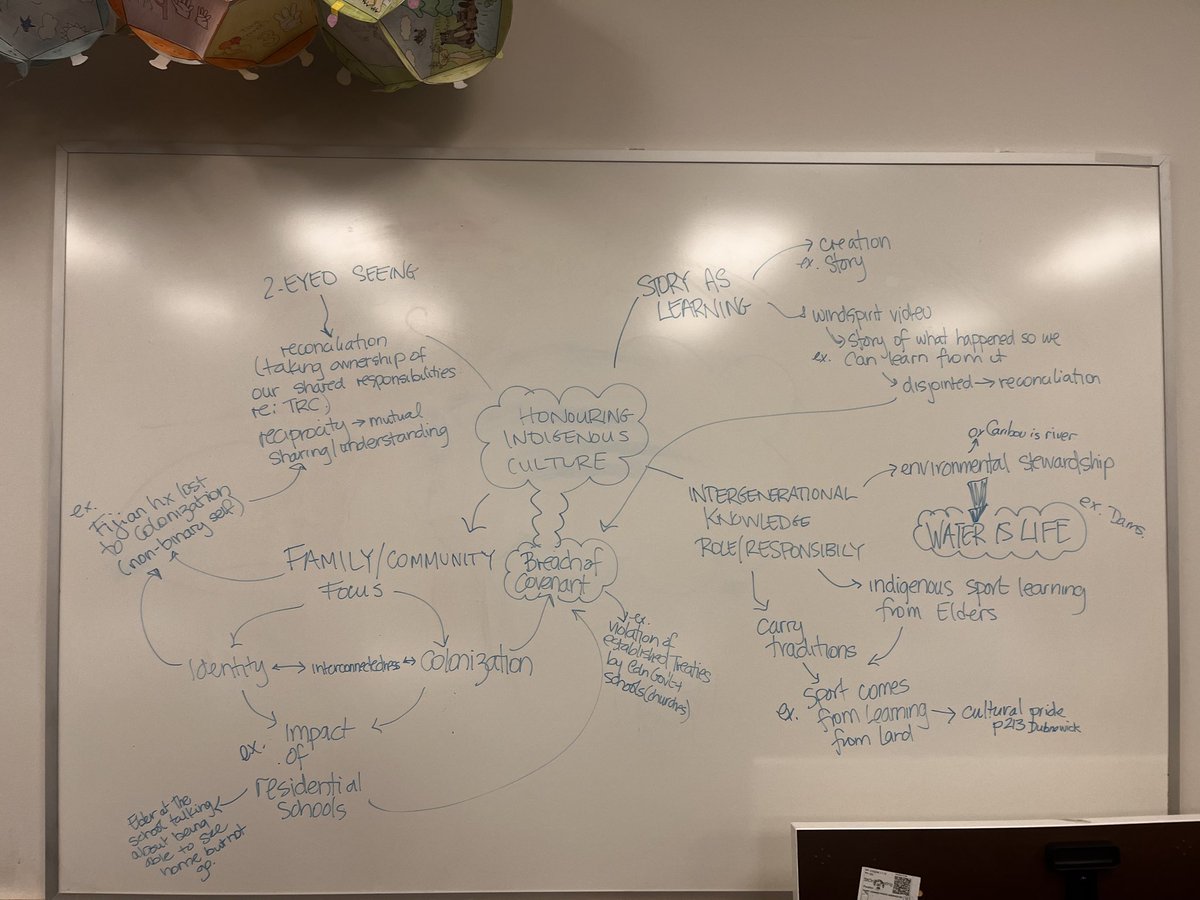 2-EYED SEEING
reconciliation
(taking ownership of
our shared responsibilities
re: TRC)
reciprocity → mutual
sharing/understanding
STORY AS
LEARNING
creation
ex. story
windspirit video
Story of what happened so we
ex. can learn from it
disjointed → reconciliation
HONOURING
INDIGENOUS
CULTURE
ex.
Fijian hx lost
to colonization
(non-binary self)
FAMILY/COMMUNITY
FOCUS
Identity ↔ interconnectedness ↔ Colonization
ex. Impact
of
residential
schools
Elder at the
school talking
about being
able to see
home but not
go.
Breach of
Covenant
ex.
violation of
established Treaties
by Can Gov't +
schools (churches)
INTERGENERATIONAL
KNOWLEDGE
ROLE/RESPONSIBILY
Caribou is river
environmental stewardship
WATER IS LIFE
ex. Dams.
indigenous sport learning
from Elders
carry
traditions
sport comes
ex. from learning
from land
cultural pride
p213 Dubnewick